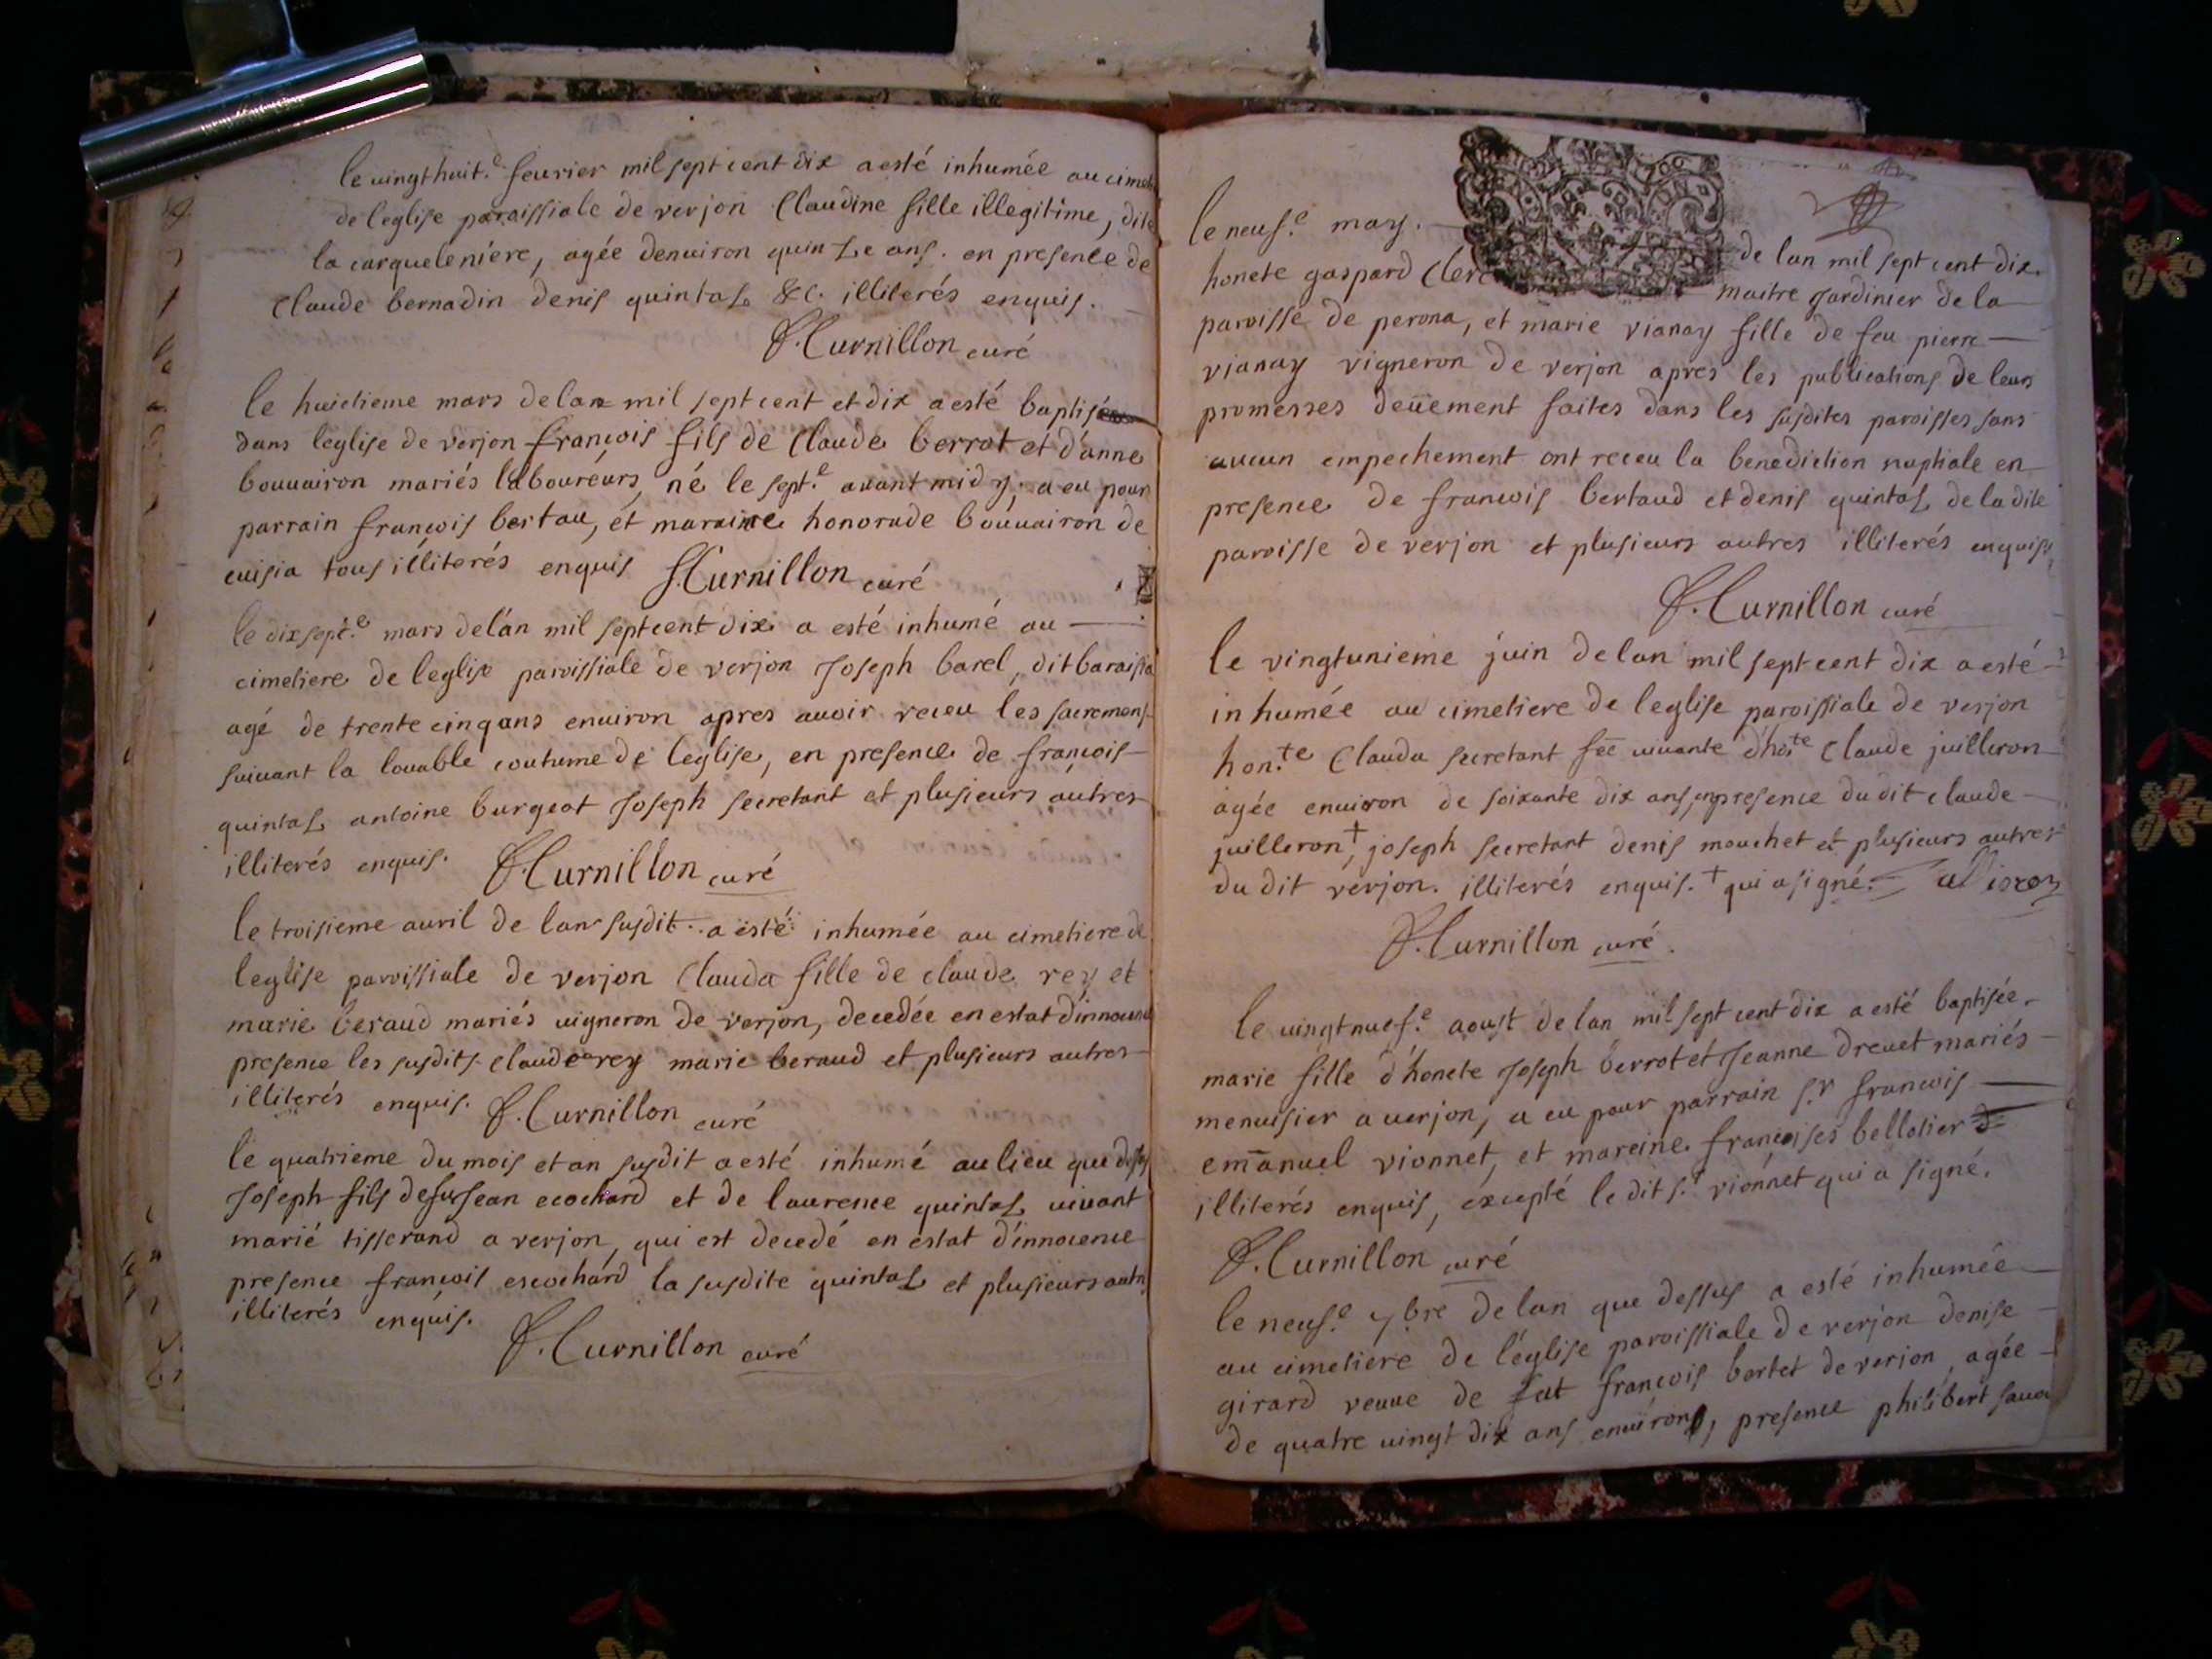 le vingthuit.e feurier mil sept cent dix a esté inhumée au cimet
de leglise paroissiale de verjon Claudine fille illegitime, dite
la carqueleniére, agée denuiron quinze ans. en presence de
Claude bernadin denis quintal &c. illiterés enquis.
Curnillon curé
le huictieme mars delan mil sept cent et dix a esté baptisé
dans leglise de verjon françois fils de Claude berrot et d'anne
bouuairon mariés laboureurs, né le sept.e auant midy. a eu pour
parrain françois bertau, et maraine honorade bouuairon de
cuisia tous illiterés enquis Curnillon curé
le dixsept.e mars delan mil sept cent dix a esté inhumé au
cimetiere de leglise paroissiale de verjon Joseph barel, dit baraissa
agé de trente cinq ans enuiron apres auoir receu les sacremens
suiuant la louable coutume de leglise, en presence de françois
quintal antoine burgeot Joseph secretant et plusieurs autres
illiterés enquis. Curnillon curé
le troisieme auril de lan susdit a esté inhumée au cimetiere de
leglise paroissiale de verjon Clauda fille de claude rey et
marie beraud mariés uigneron de verjon, decedée en estat d'innocence
presence les susdits claude rey marie beraud et plusieurs autres
illiterés enquis. Curnillon curé
le quatrieme du mois et an susdit a esté inhumé au lieu que dessus
Joseph fils de fu Jean ecochard et de laurence quintal uiuant
marié tisserand a verjon, qui est decedé en estat d'innocence
presence françois escochard la susdite quintal et plusieurs autr
illiterés enquis.
Curnillon curé
le neuf.e may. de lan mil sept cent dix.
honete gaspard Clerc maitre Jardinier de la
paroisse de perona, et marie vianay fille de feu pierre
vianay vigneron de verjon apres les publications de leurs
promesses deüement faites dans les susdites paroisses sans
aucun empechement ont receu la benediction nuptiale en
presence de francois bertaud et denis quintal de la dite
paroisse de verjon et plusieurs autres illiterés enquis,
Curnillon curé
le vingtunieme juin delan mil sept cent dix a esté
inhumée au cimetiere de leglise paroissiale de verjon
hon.te Clauda secretant fēē uiuante d'ho.te Claude juilleron
agée enuiron de soixante dix ans, en presence du dit claude
juilleron,† joseph secretant denis mouchet et plusieurs autres
du dit verjon. illiterés enquis. † qui a signé.
Curnillon curé.
le uingtneuf.e aoust de lan mil sept cent dix a esté baptisée
marie fille d'honete Joseph berrot et Jeanne dreuet mariés
menuisier a uerjon, a eu pour parrain s.r francois
em̄anuel vionnet, et mareine françoises bellotier
illiterés enquis, excepté le dit s.r vionnet qui a signé.
Curnillon curé
le neuf.e 7bre de lan que dessus a esté inhumée
au cimetiere de l'église paroissiale de verjon denise
girard veuue de fut françois bertet de verjon, agée
de quatre uingt dix ans enuiron, presence philibert